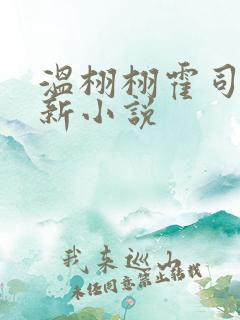 温栩栩霍司
新小说
我来巡山
未经同意禁止转载